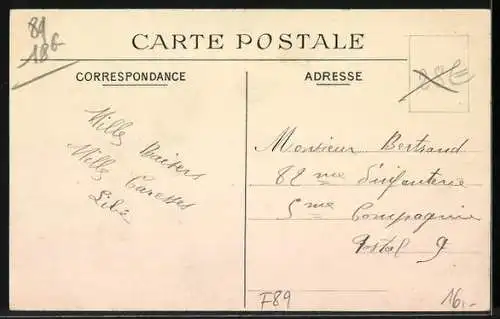 89
18€
CARTE POSTALE
CORRESPONDANCE
ADRESSE
Mille Baisers
Mille Caresses
Monsieur Bertrand
82 me d'infanterie
5me Compagnie
Postal 9
F89
16.-